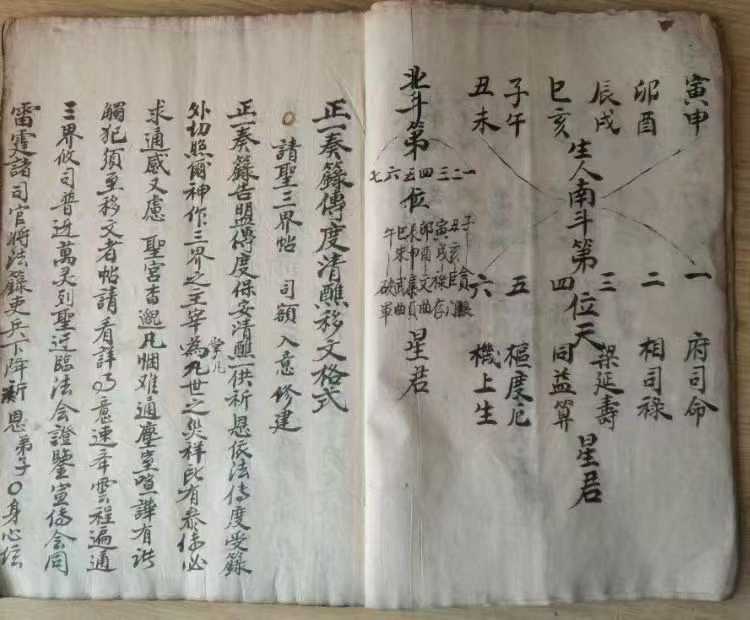 寅申 一 府司命
卯酉 二 相司祿
辰戌 三 梁延壽
生人南斗第 位天 星君
巳亥 四 同益算
子午 五 樞度厄
丑未 六 機上生
北斗第 位 星君
一二三四五六七
子 貪狼
丑亥 巨門
寅戌 祿存
卯酉 文曲
辰申 廉貞
巳未 武曲
午 破軍
正一奏籙傳度清醮移文格式
○請聖三界帖 司額入意修建
正一奏籙告盟傳度保安清醮一供祈恩依法傳度受籙
外切照爾神作三界之主宰為凡世之災祥比有泰修必
掌凡
求通感又慮 聖宮杳邈凡悃难通塵室喧譁有訛
觸犯須至移文者帖請看詳乃意速奉雲程遍通
三界攸司普迓萬灵列聖迂臨法会證鑒宣揚会同
雷霆諸司官將法籙吏兵下降新恩弟子○身心坛